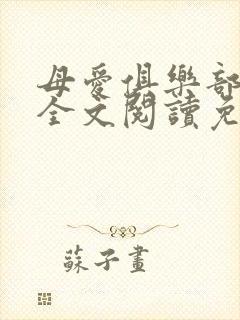 母愛俱樂部
全文閱讀免
蘇子畫